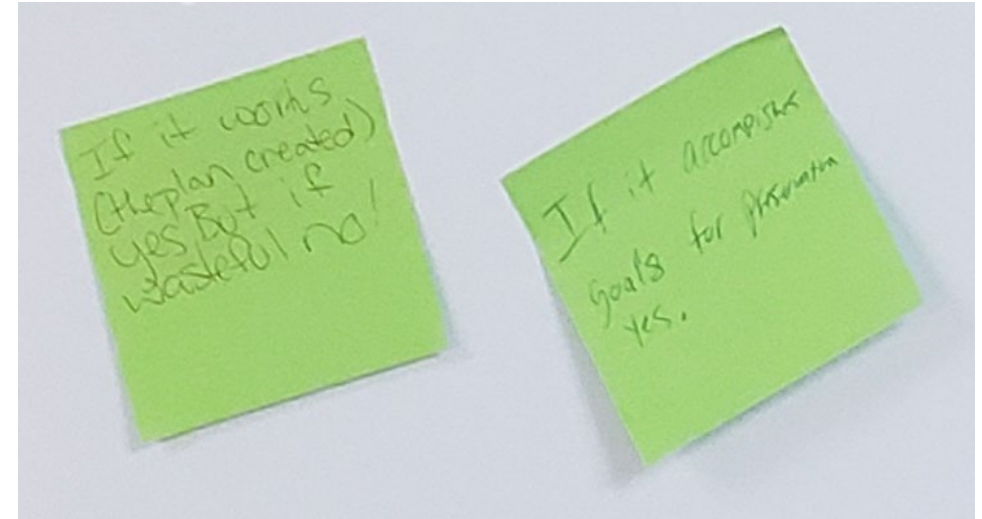 If it works
(the plan created)
yes, But if
wasteful no!
If it accomplishes
goals for preservation
yes.